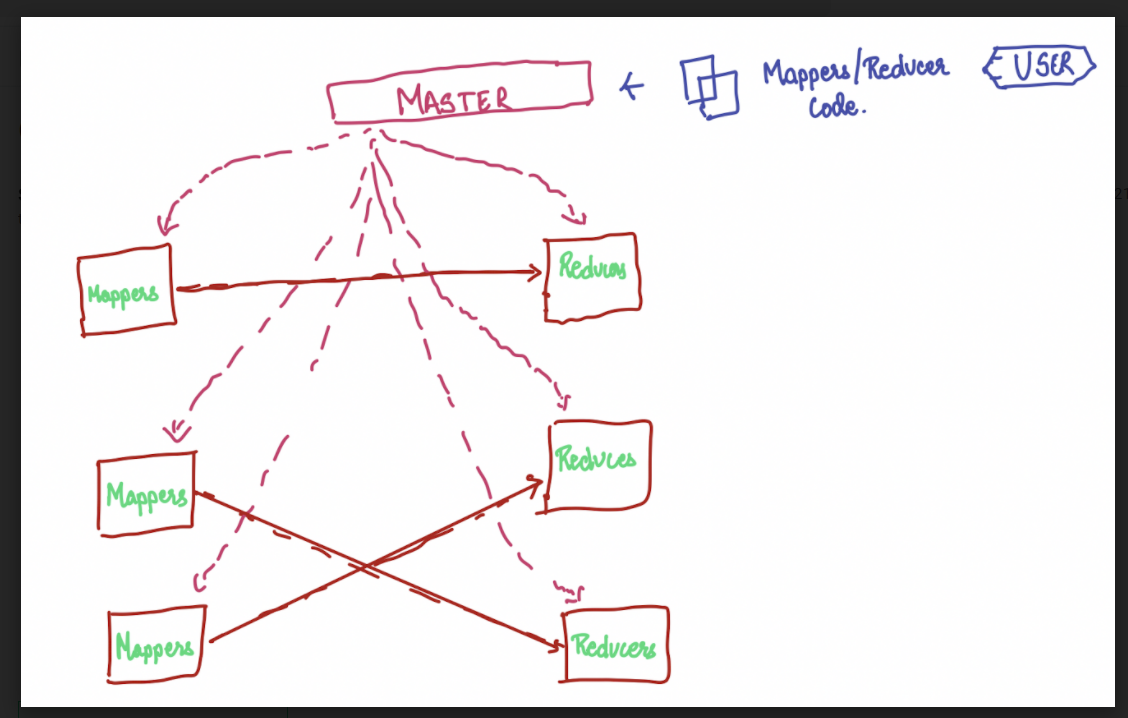 MASTER
Mappers/Reducer
Code.
USER
Mappers
Reducers
Mappers
Reduces
Mappers
Reducers